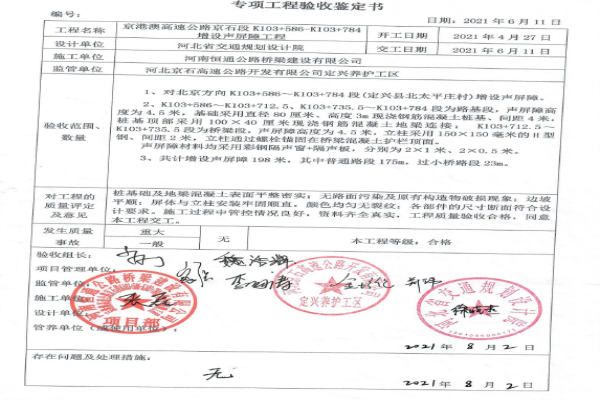 专项工程验收鉴定书
编号： 日期：2021年6月11日
工程名称 京港澳高速公路京石段K103+586-K103+784增设声屏障工程 开工日期 2021年4月27日
设计单位 河北省交通规划设计院 交工日期 2021年6月11日
施工单位 河南恒通公路桥梁建设有限公司
监管单位 河北京石高速公路开发有限公司定兴养护工区
验收范围、数量
1、对北京方向K103+586～K103+784段(定兴县北太平庄村)增设声屏障。
2、K103+586～K103+712.5、K103+735.5～K103+784段为路基段，声屏障高
度为4.5米，基础采用直径80厘米、高度3m现浇钢筋混凝土桩基、间距4米，
桩基顶部采用100×40厘米现浇钢筋混凝土地梁连接；K103+712.5～
K103+735.5段为桥梁段，声屏障高度为4.5米，立柱采用150×150毫米的H型
钢、间距2米，立柱通过螺栓锚固在桥梁混凝土护栏顶面。
声屏障材料均采用彩钢隔声窗+隔声板，分别为2×1米、2×0.5米。
3、共计增设声屏障198米，其中普通路段175m，过小桥路段23m。
对工程的质量评定及意见
桩基础及地梁混凝土表面平整密实；无路面污染及原有构造物破损现象；边坡
平顺；屏体与立柱安装牢固顺直，颜色均匀无裂纹；各部件的尺寸断面符合设
计要求。施工过程中管控情况良好，资料齐全真实，工程质量验收合格，同意
本工程交工。
发生质量事故 重大 一般 无 本工程等级：合格
验收组长：
项目管理单位：
监管单位：
施工单位：
设计单位：
管养单位（或使用单位）：
项目部
定兴养护工区
河北省交通规划设计院
2021年8月2日
存在问题及处理措施：
无
2021年8月2日